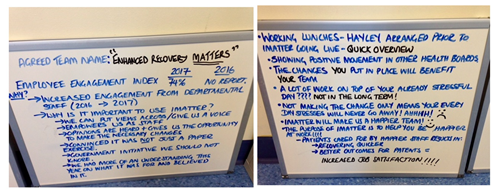 AGREED TEAM NAME: "ENHANCED RECOVERY MATTERS"
2017 2016
EMPLOYEE ENGAGEMENT INDEX 74% NO REPORT.
WHY?
→ INCREASED ENGAGEMENT FROM DEPARTMENTAL
STAFF (2016 → 2017)
→ WHY IS IT IMPORTANT TO USE IMATTER?
- WE CAN PUT VIEWS ACROSS/GIVE US A VOICE
- EMPOWERS US AS STAFF
- OPINIONS ARE HEARD + GIVES US THE OPPORTUNITY
TO MAKE THE NECESSARY CHANGES
- CONVINCED IT WAS NOT JUST A PAPER
EXERCISE.
- GOVERNMENT INITIATIVE WE SHOULD NOT
IGNORE.
- WE HAD MORE OF AN UNDERSTANDING THIS
YEAR ON WHAT IT WAS FOR AND BELIEVED
IN IT.
• WORKING LUNCHES - HAYLEY ARRANGED PRIOR TO
IMATTER GOING LIVE - QUICK OVERVIEW
• SHOWING POSITIVE MOVEMENT IN OTHER HEALTH BOARDS
• THE CHANGES YOU PUT IN PLACE WILL BENEFIT
YOUR TEAM
• A LOT OF WORK ON TOP OF YOUR ALREADY STRESSFUL
DAY???! NOT IN THE LONG TERM!
• NOT MAKING THE CHANGE ONLY MEANS YOUR EVERY
DAY STRESSES WILL NEVER GO AWAY! AHHHH!
• IMATTER WILL MAKE US A HAPPIER TEAM!
• THE PURPOSE OF IMATTER IS TO HELP YOU BE HAPPIER
AT WORK!!!
- PATIENTS CARED FOR BY HAPPIER STAFF RESULTS IN:
→ RECOVERING QUICKER
→ BETTER OUTCOMES FOR PATIENTS =
INCREASED JOB SATISFACTION!!!!